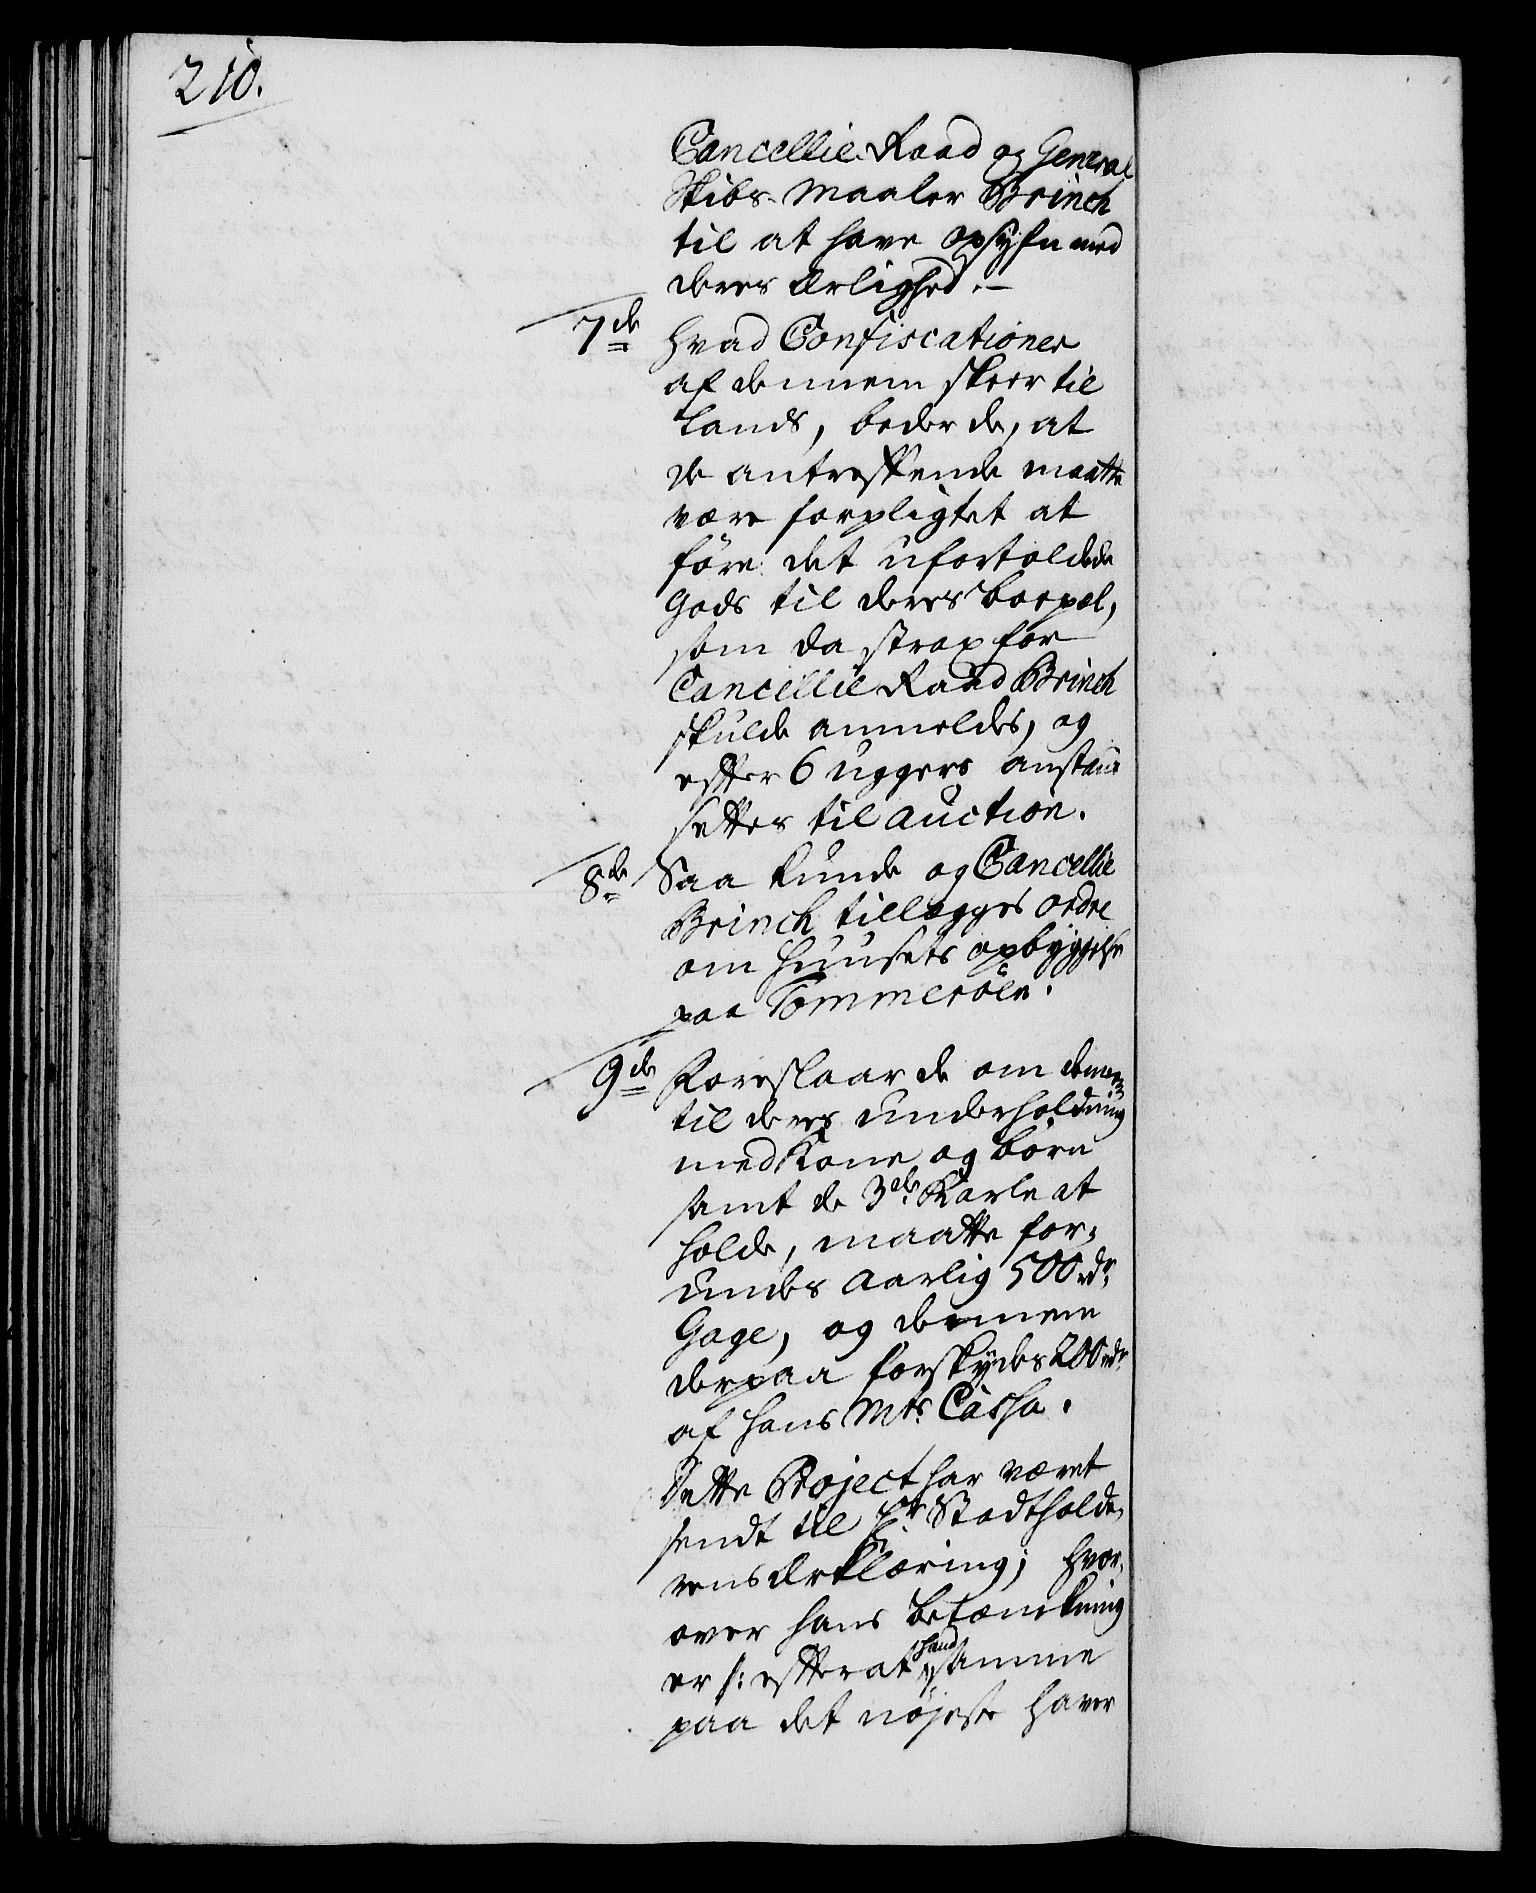 210.
Cancellie Raad og General
Skibs-Maaler Brinch
til at have opsyn med
deres Ærlighed.-
7de hvad Confiscationer
af dennem skeer til
Lands, beder de, at
de antreffende maatte
være forpligtet at
føre det ufortoldede
Gods til deres boepæl,
som da strax for
Cancellie Raad Brinch
skulde anmeldes, og
efter 6 uggers anstand
settes til auction.
8de Saa kunde og Cancellie
Brinch tillægges ordre
om Huusets opbyggelse
paa Tommeröen.
9de Foreslaar de om dennem
til deres underholdning
med Kone og børn
samt de 3de Karle at
holde, maatte for-
undes aarlig 500 rdr.
Gage, og dennem
derpaa forskydes 200 rdr.
af hans Mts. Cassa.
Dette Project har været
sendt til Hr. Stadtholde-
rens Erklæring; hvor-
over hans betænkning
er /: efter at hand samme
paa det nøjeste haver